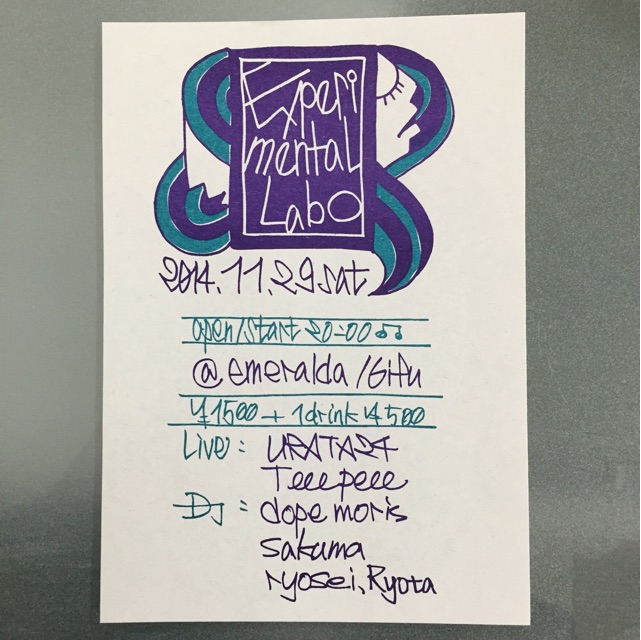 Experi
mental
Labo
2014.11.29sat
open/start 20:00♫
@emeralda/Gifu
¥1500 + 1drink ¥500
Live: URATA24
Teeepeee
DJ: dope moris
sakuma
ryosei, Ryota